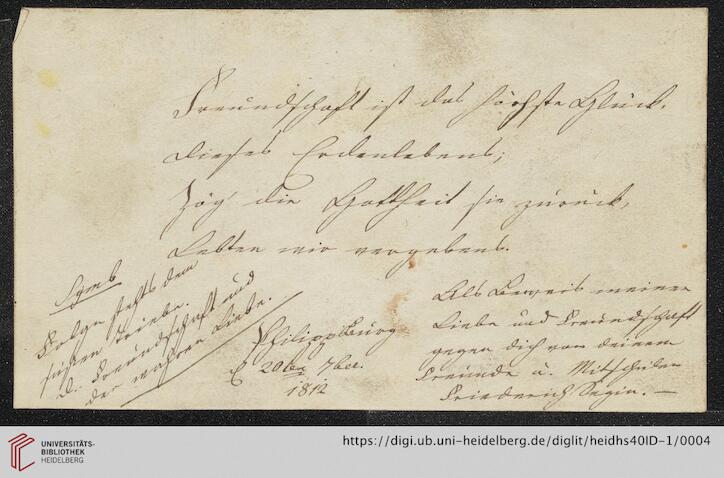 Freundschaft ist das höchste Glück,
Dieses Erdenlebens;
Zög' die Gottheit sie zurück,
Lebten wir vergebens.
Symb
Folge stets dem
süssten Triebe.
D. Freundschaft und
der wahren Liebe.
Philippsburg
d 20ten 7ber.
1812
Als Beweis meiner
Liebe und Freundschaft
gegen dich von deinem
Freunde u. Mitschüler
Friederich
UNIVERSITÄTS-
BIBLIOTHEK
HEIDELBERG
https://digi.ub.uni-heidelberg.de/diglit/heidhs40ID-1/0004